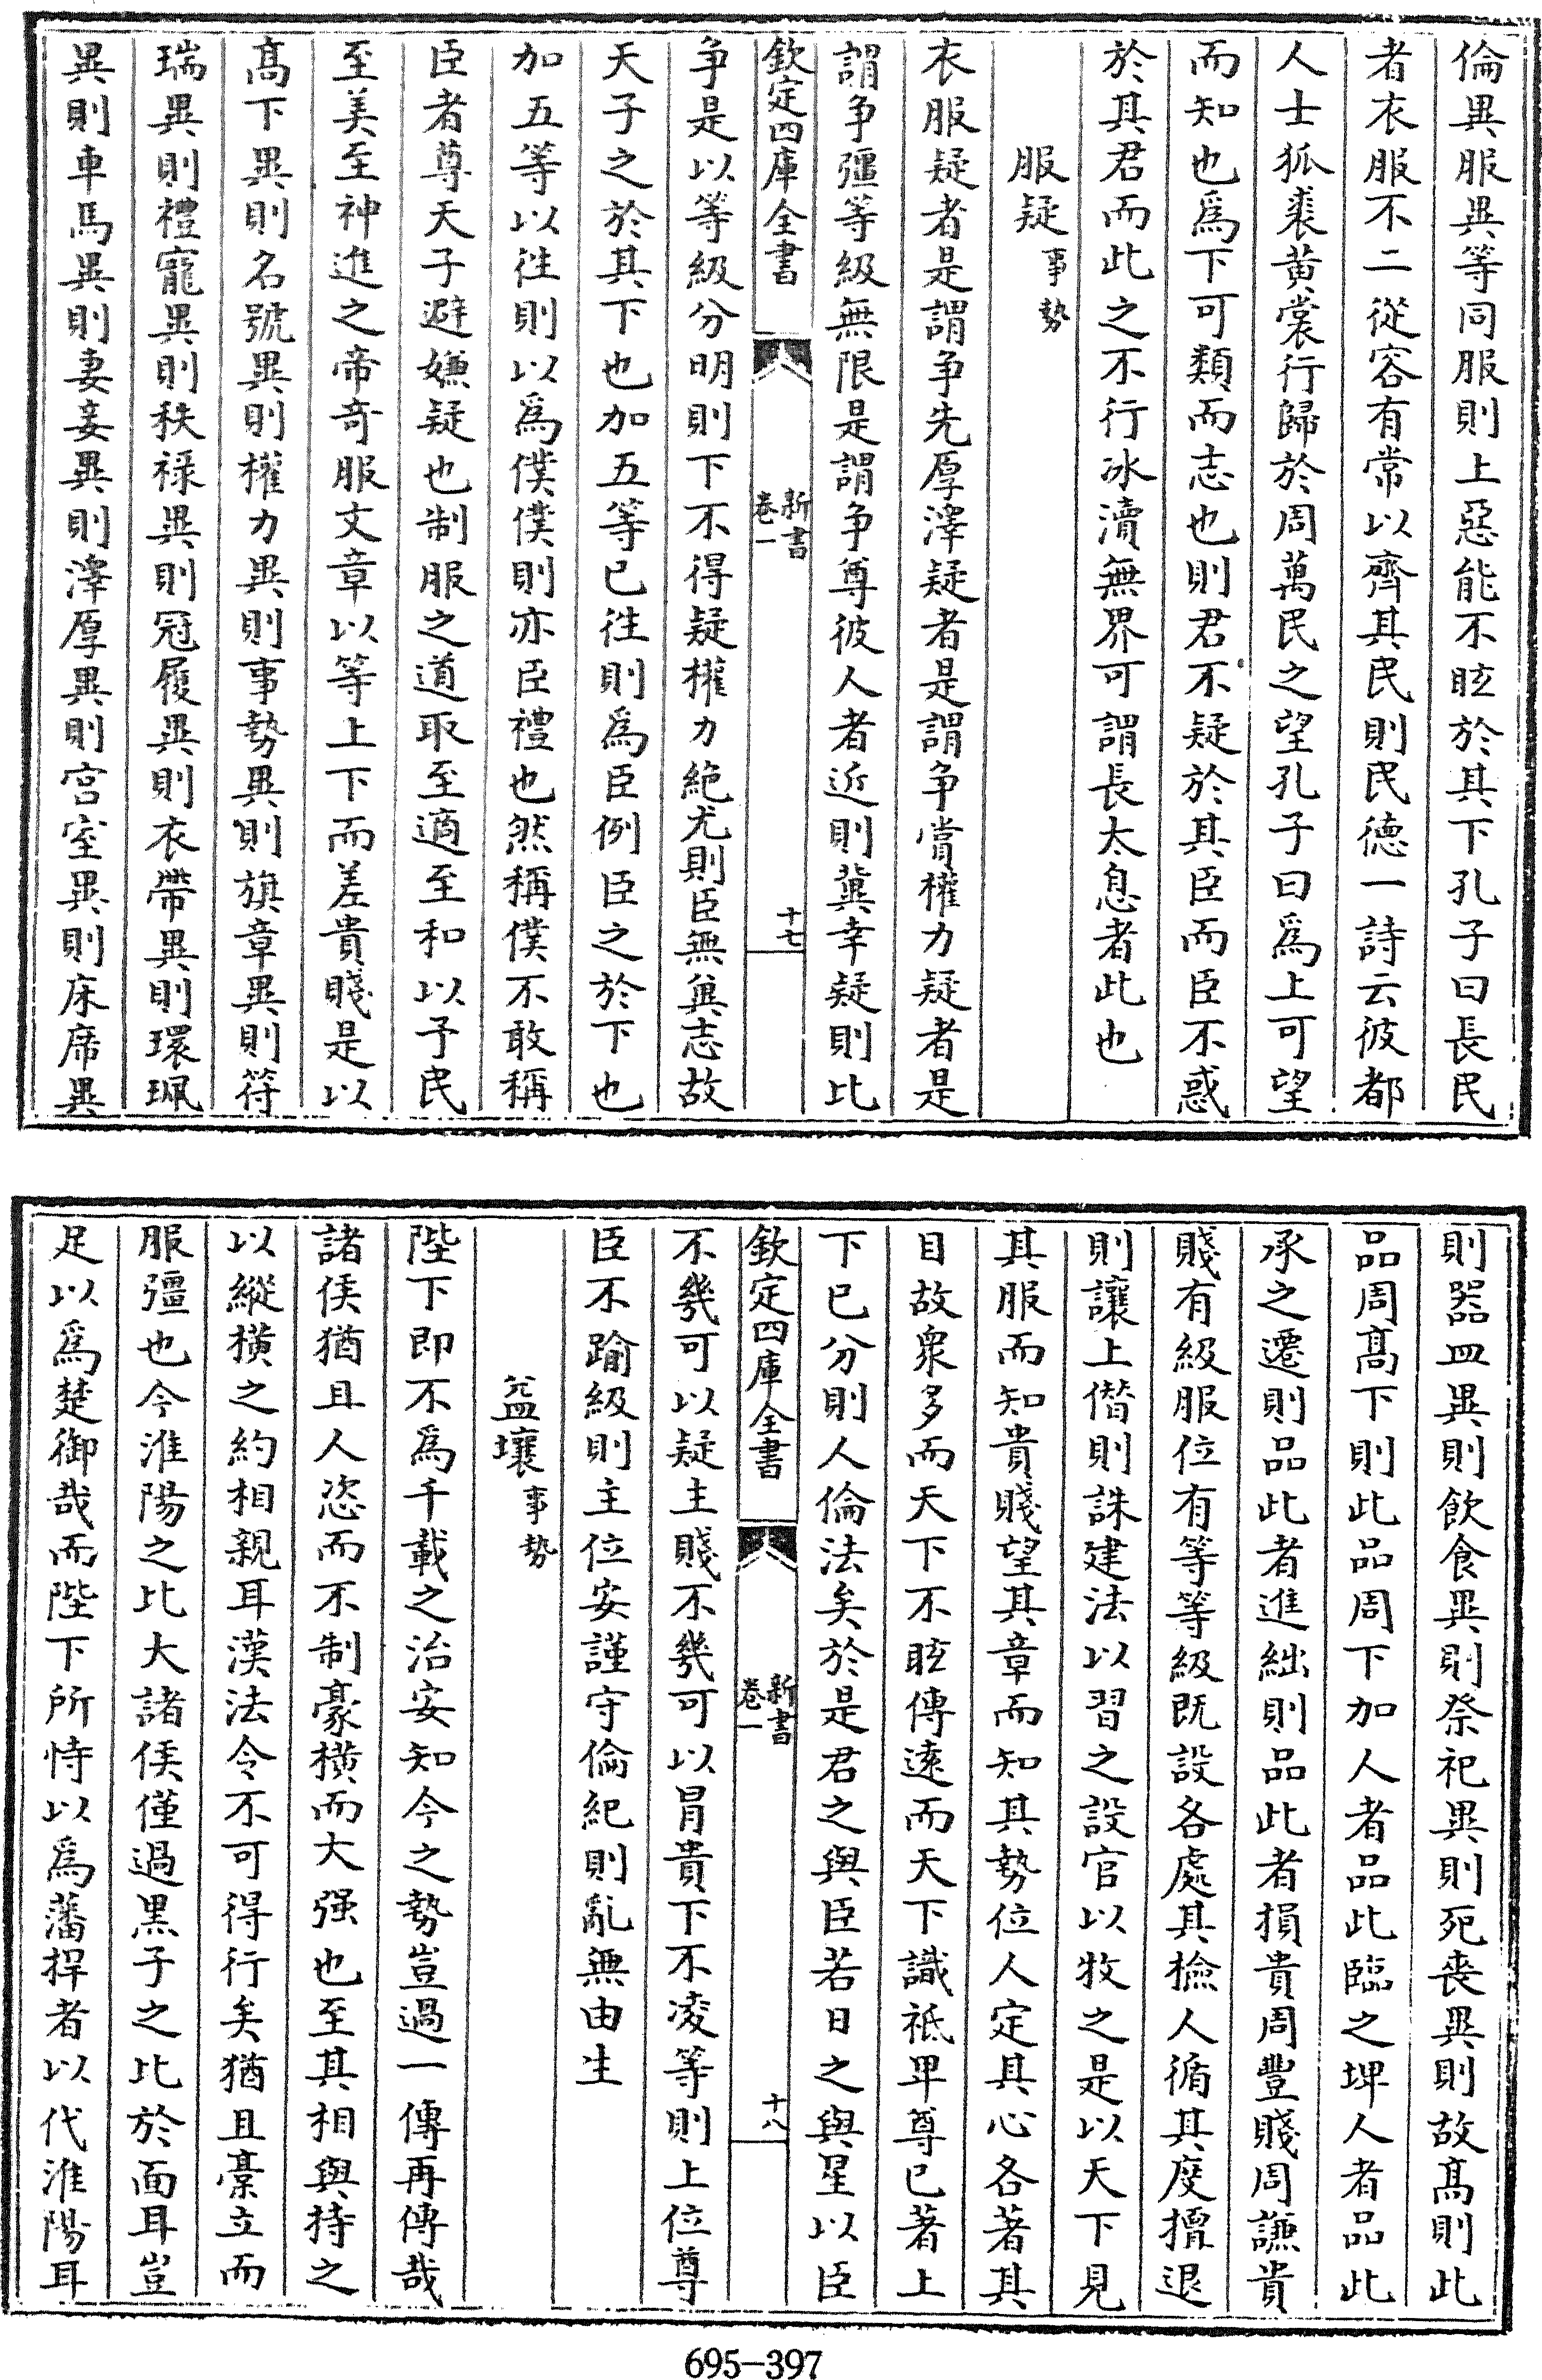 倫異服異等同服則上惡能不眩於其下孔子曰長民
者衣服不二從容有常以齊其民則民德一詩云彼都
人士狐裘黃裳行歸於周萬民之望孔子曰爲上可望
而知也爲下可類而志也則君不疑於其臣而臣不惑
於其君而此之不行冰瀆無界可謂長太息者此也
服疑事勢
衣服疑者是謂争先厚澤疑者是謂争賞權力疑者是
謂争彊等級無限是謂争尊彼人者近則冀幸疑則比
欽定四庫全書
新書
卷一
十七
争是以等級分明則下不得疑權力絶尤則臣無兾志故
天子之於其下也加五等已徃則爲臣例臣之於下也
加五等以徃則以爲僕僕則亦臣禮也然稱僕不敢稱
臣者尊天子避嫌疑也制服之道取至適至和以予民
至美至神進之帝奇服文章以等上下而差貴賤是以
髙下異則名號異則權力異則事勢異則旗章異則符
瑞異則禮寵異則秩祿異則冠履異則衣帶異則環珮
異則車馬異則妻妾異則澤厚異則宫室異則床席異
則器皿異則飲食異則祭祀異則死喪異則故髙則此
品周髙下則此品周下加人者品此臨之埤人者品此
承之遷則品此者進絀則品此者損貴周豐賤周謙貴
賤有級服位有等等級既設各處其檢人循其度擅退
則讓上僭則誅建法以習之設官以牧之是以天下見
其服而知貴賤望其章而知其勢位人定其心各著其
目故衆多而天下不眩傳逺而天下識祗卑尊已著上
下已分則人倫法矣於是君之與臣若日之與星以臣
欽定四庫全書
新書
卷一
十八
不幾可以疑主賤不幾可以冒貴下不凌等則上位尊
臣不踰級則主位安謹守倫紀則亂無由生
益壤事勢
陛下即不爲千載之治安知今之勢豈過一傳再傳哉
諸侯猶且人恣而不制豪横而大强也至其相與持之
以縱横之約相親耳漢法令不可得行矣猶且槀立而
服彊也今淮陽之比大諸侯僅過黑子之比於面耳豈
足以爲楚御哉而陛下所恃以爲藩捍者以代淮陽耳
695-397